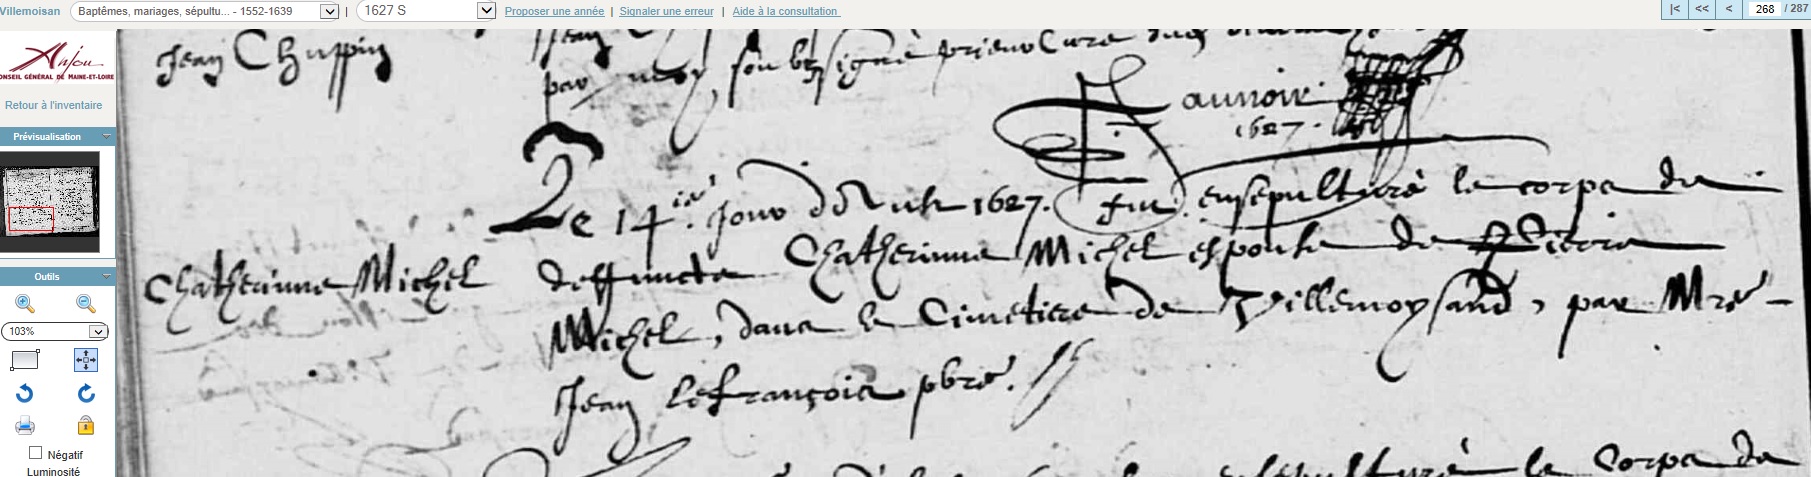 Villemoisan
Baptêmes, mariages, sépultu... - 1552-1639 | 1627 S
Proposer une année | Signaler une erreur | Aide à la consultation
|< << < 268 / 287
Anjou
CONSEIL GÉNÉRAL DE MAINE-ET-LOIRE
Retour à l'inventaire
Prévisualisation
Outils
103%
Négatif
Luminosité
Jean Chuppin
par moy soubzsigné prieur Curé
aunoir
1627.
Le 14ie. jour d'Aust 1627. fut ensepulturé le corps de
Chatherinne Michel
deffuncte Chatherinne Michel espouse de Pierre
Michel, dans le Cimetiere de Villemoysand, par Mre
Jean lefrançois pbre.
ensepulturé le Corps de